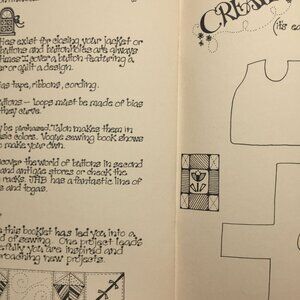 ties exist for closing your jacket or
buttons and buttonholes are always
times I cover a button featuring a
er or quilt a design.
as tape, ribbons, cording.
uttons - Loops must be made of bias
they curve.
y be purchased. Talon makes them in
sic colors. Vogue sewing book shows
to make your own.
cover the world of buttons in second
and antique stores or check the
racks. JHB has a fantastic line of
s and togas.
e this booklet has led you into a
d of sewing. One project leads
efully you are inspired and
proaching new projects.
(it's ea